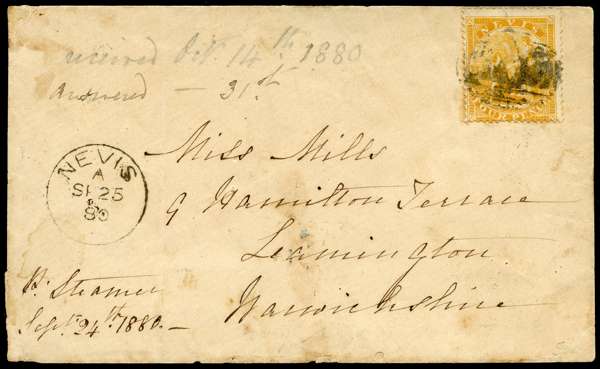 received Oct. 14th 1880
answered — 31st
NEVIS
NEVIS
A
SP 25
80
Miss Mills
9 Hamilton Terrace
Leamington
Warwickshire
Pr. Steamer
Sept. 24th 1880.—